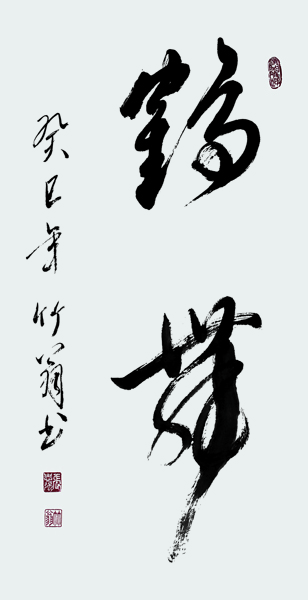 鹤舞
癸巳年竹翁书